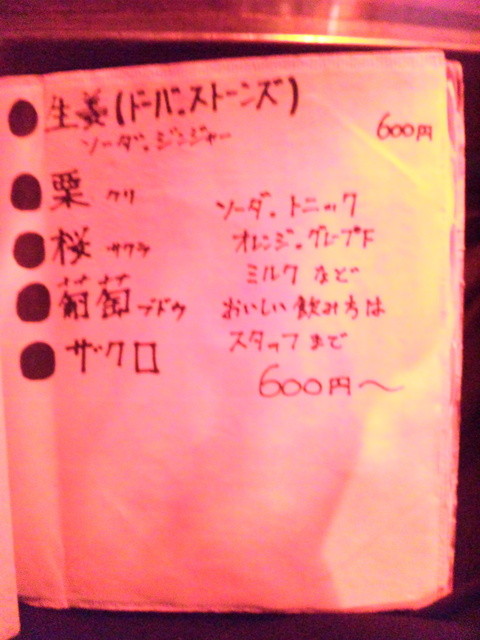 生姜(ドーバ.ストーンズ)
ソーダ.ジンジャー
600円
栗 クリ
ソーダ.トニック
桜 サクラ
オレンジ.グレープF
ミルク など
葡萄 ブドウ
おいしい飲み方は
ザクロ
スタッフまで
600円〜